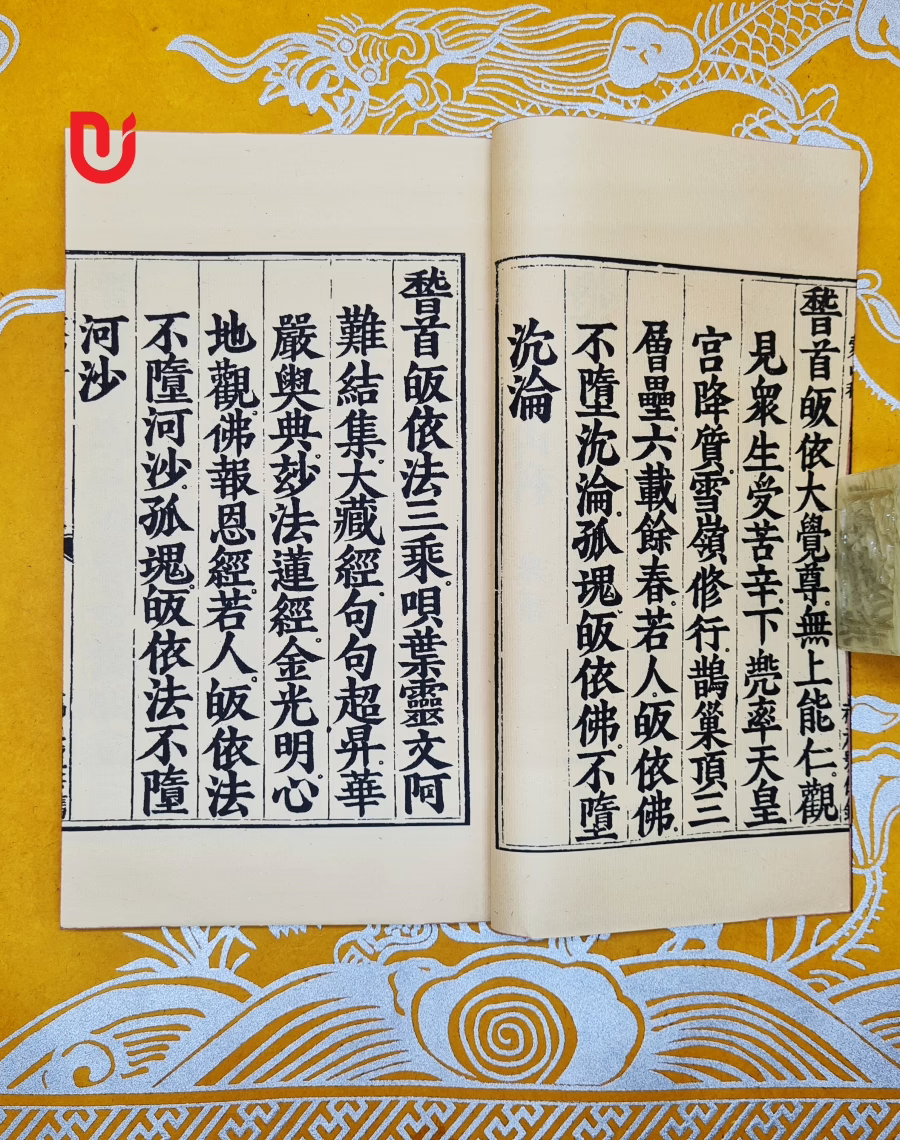 稽首皈依大覺尊。無上能仁。觀
見眾生受苦辛。下兠率天皇
宮降質。雪嶺修行。鵲巢頂三
層壘。六載餘春。若人。皈依佛。
不墮沉淪。孤魂皈依佛不墮
沉淪
稽首皈依法。三乘。唄葉靈文阿
難結集。大藏經。句句超昇。華
嚴奧典。玅法蓮經。金光明。心
地觀。佛報恩經。若人。皈依法
不墮河沙。孤魂皈依法不墮
河沙